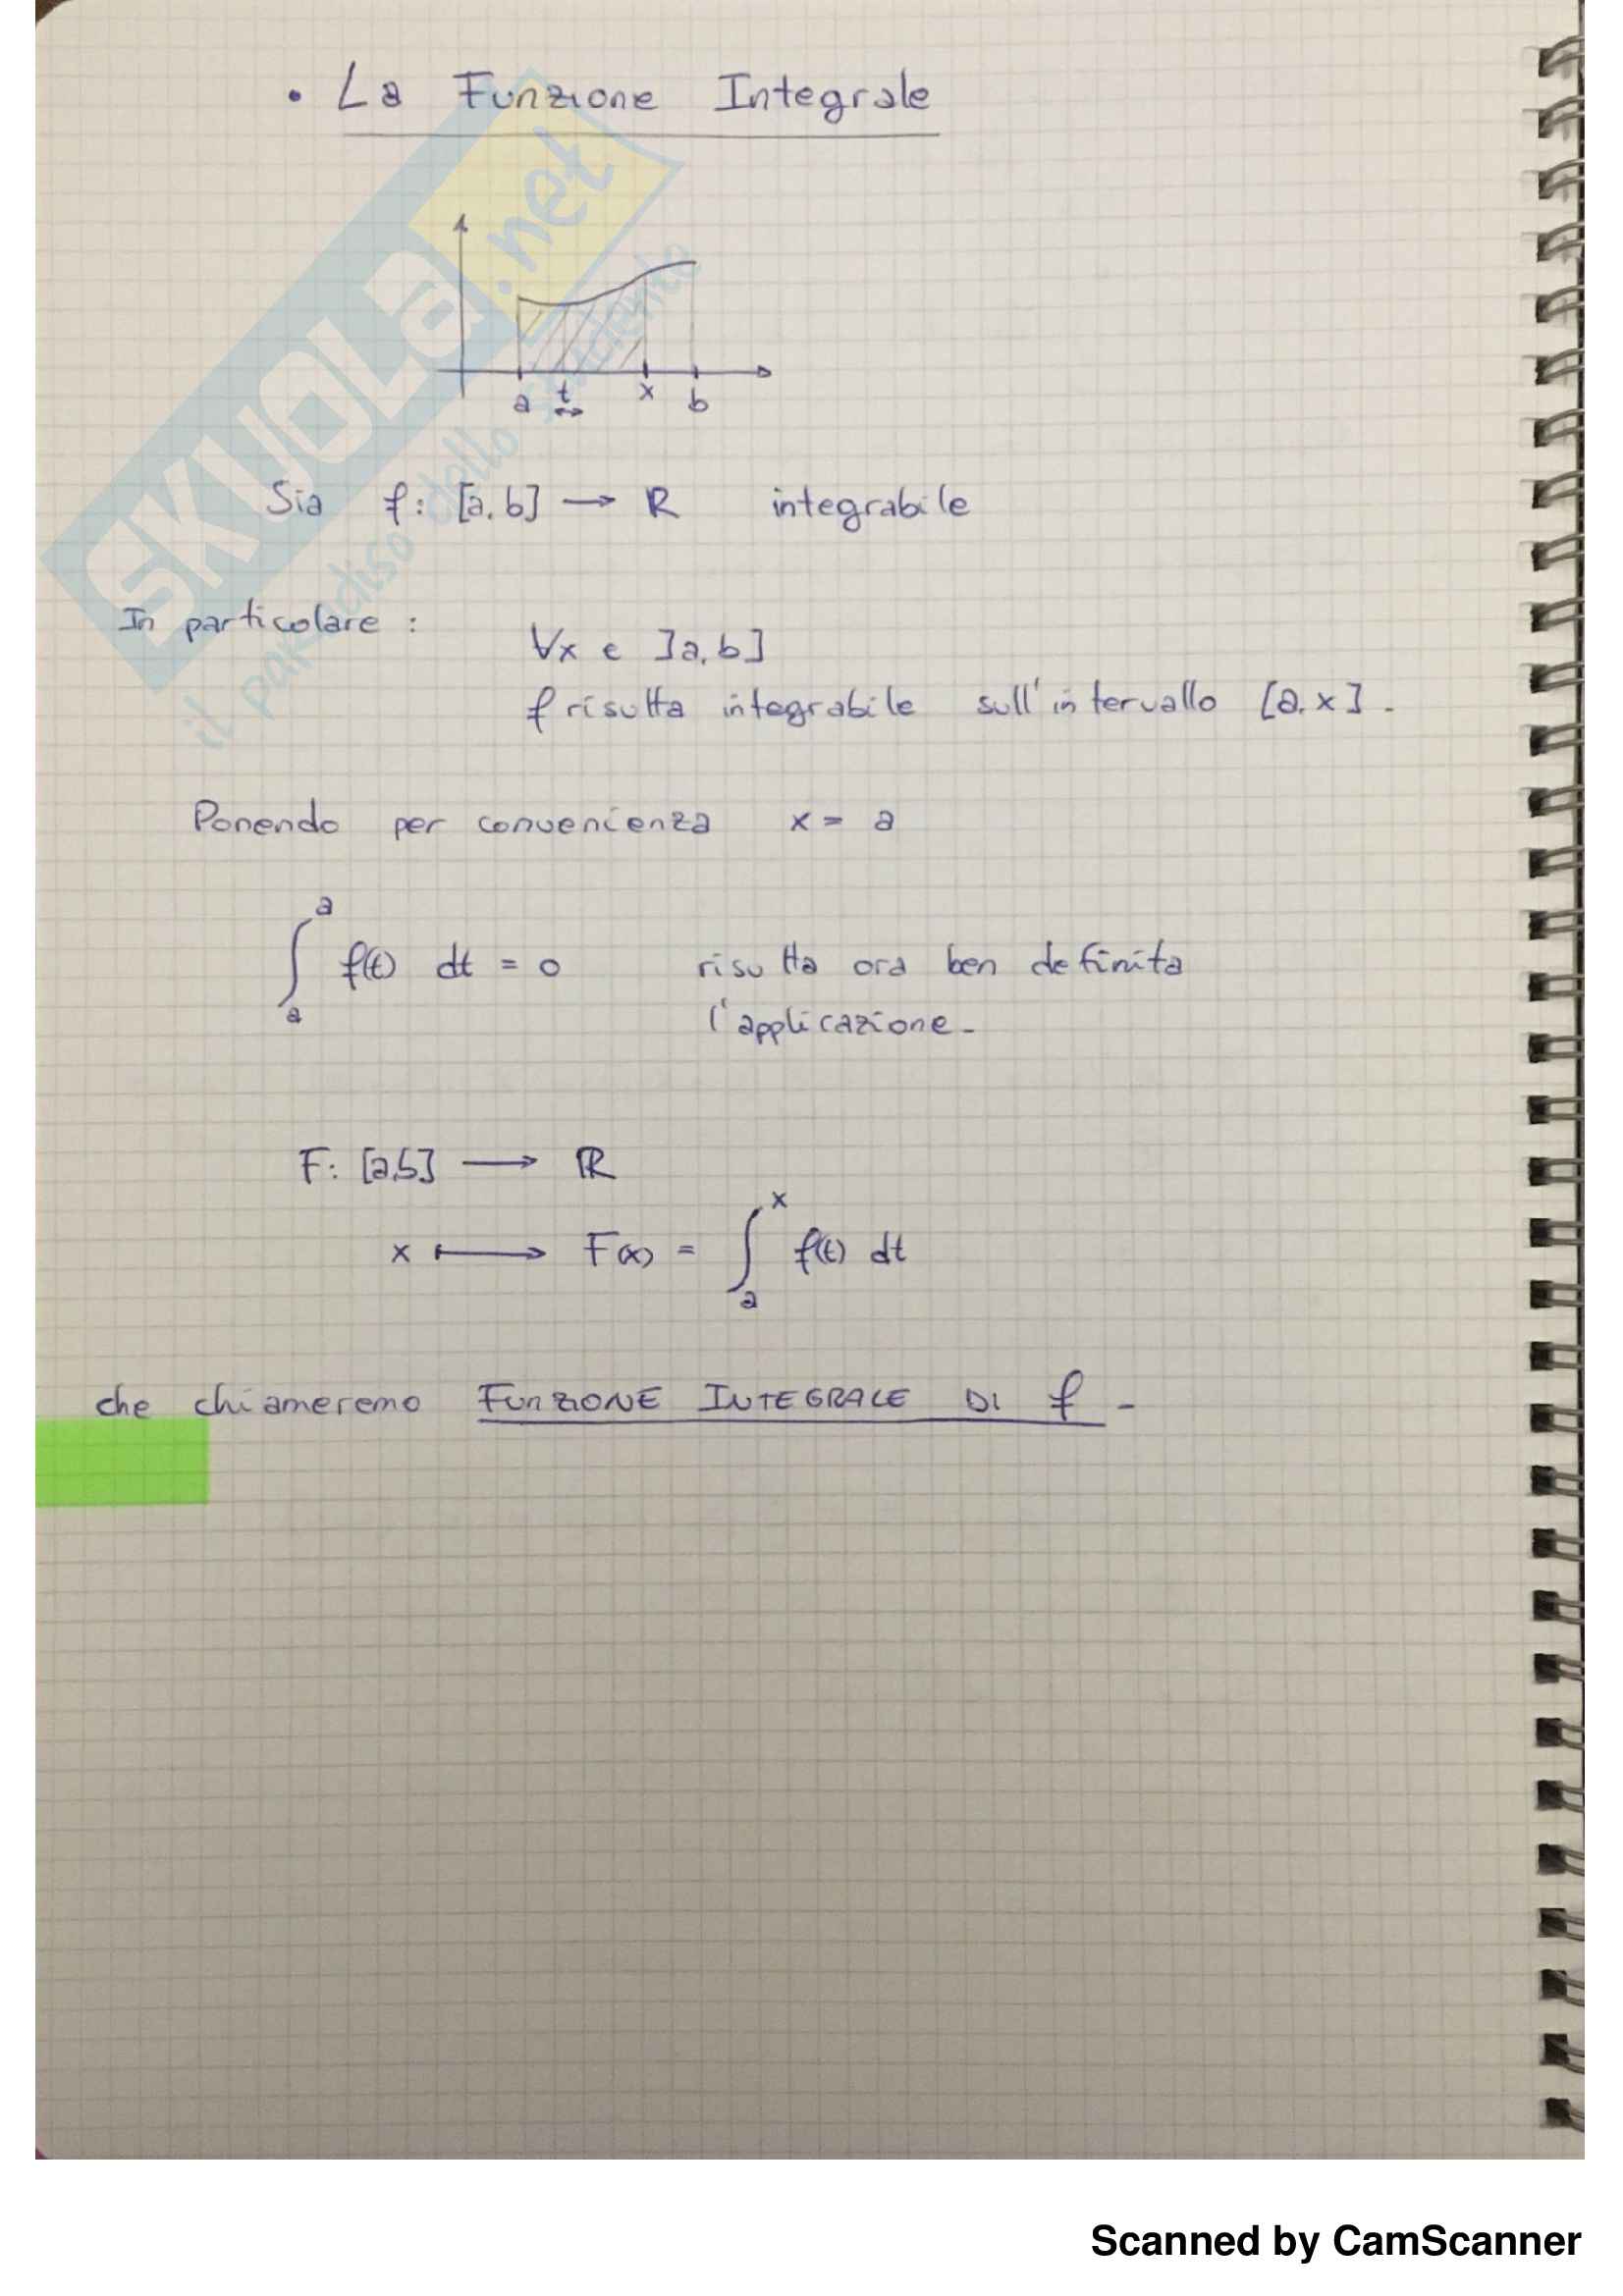 • La Funzione Integrale
a t x b
Sia f: [a, b] → R integrabile
In particolare :
∀x ∈ ]a, b]
f risulta integrabile sull'intervallo [a, x].
Ponendo per convenienza x = a
∫ₐᵃ f(t) dt = 0 risulta ora ben definita
l'applicazione.
F: [a,b] → ℝ
x ⟼ F(x) = ∫ₐˣ f(t) dt
che chiameremo FUNZIONE INTEGRALE DI f -
SKUOLa.net
il paradiso dello studente
Scanned by CamScanner